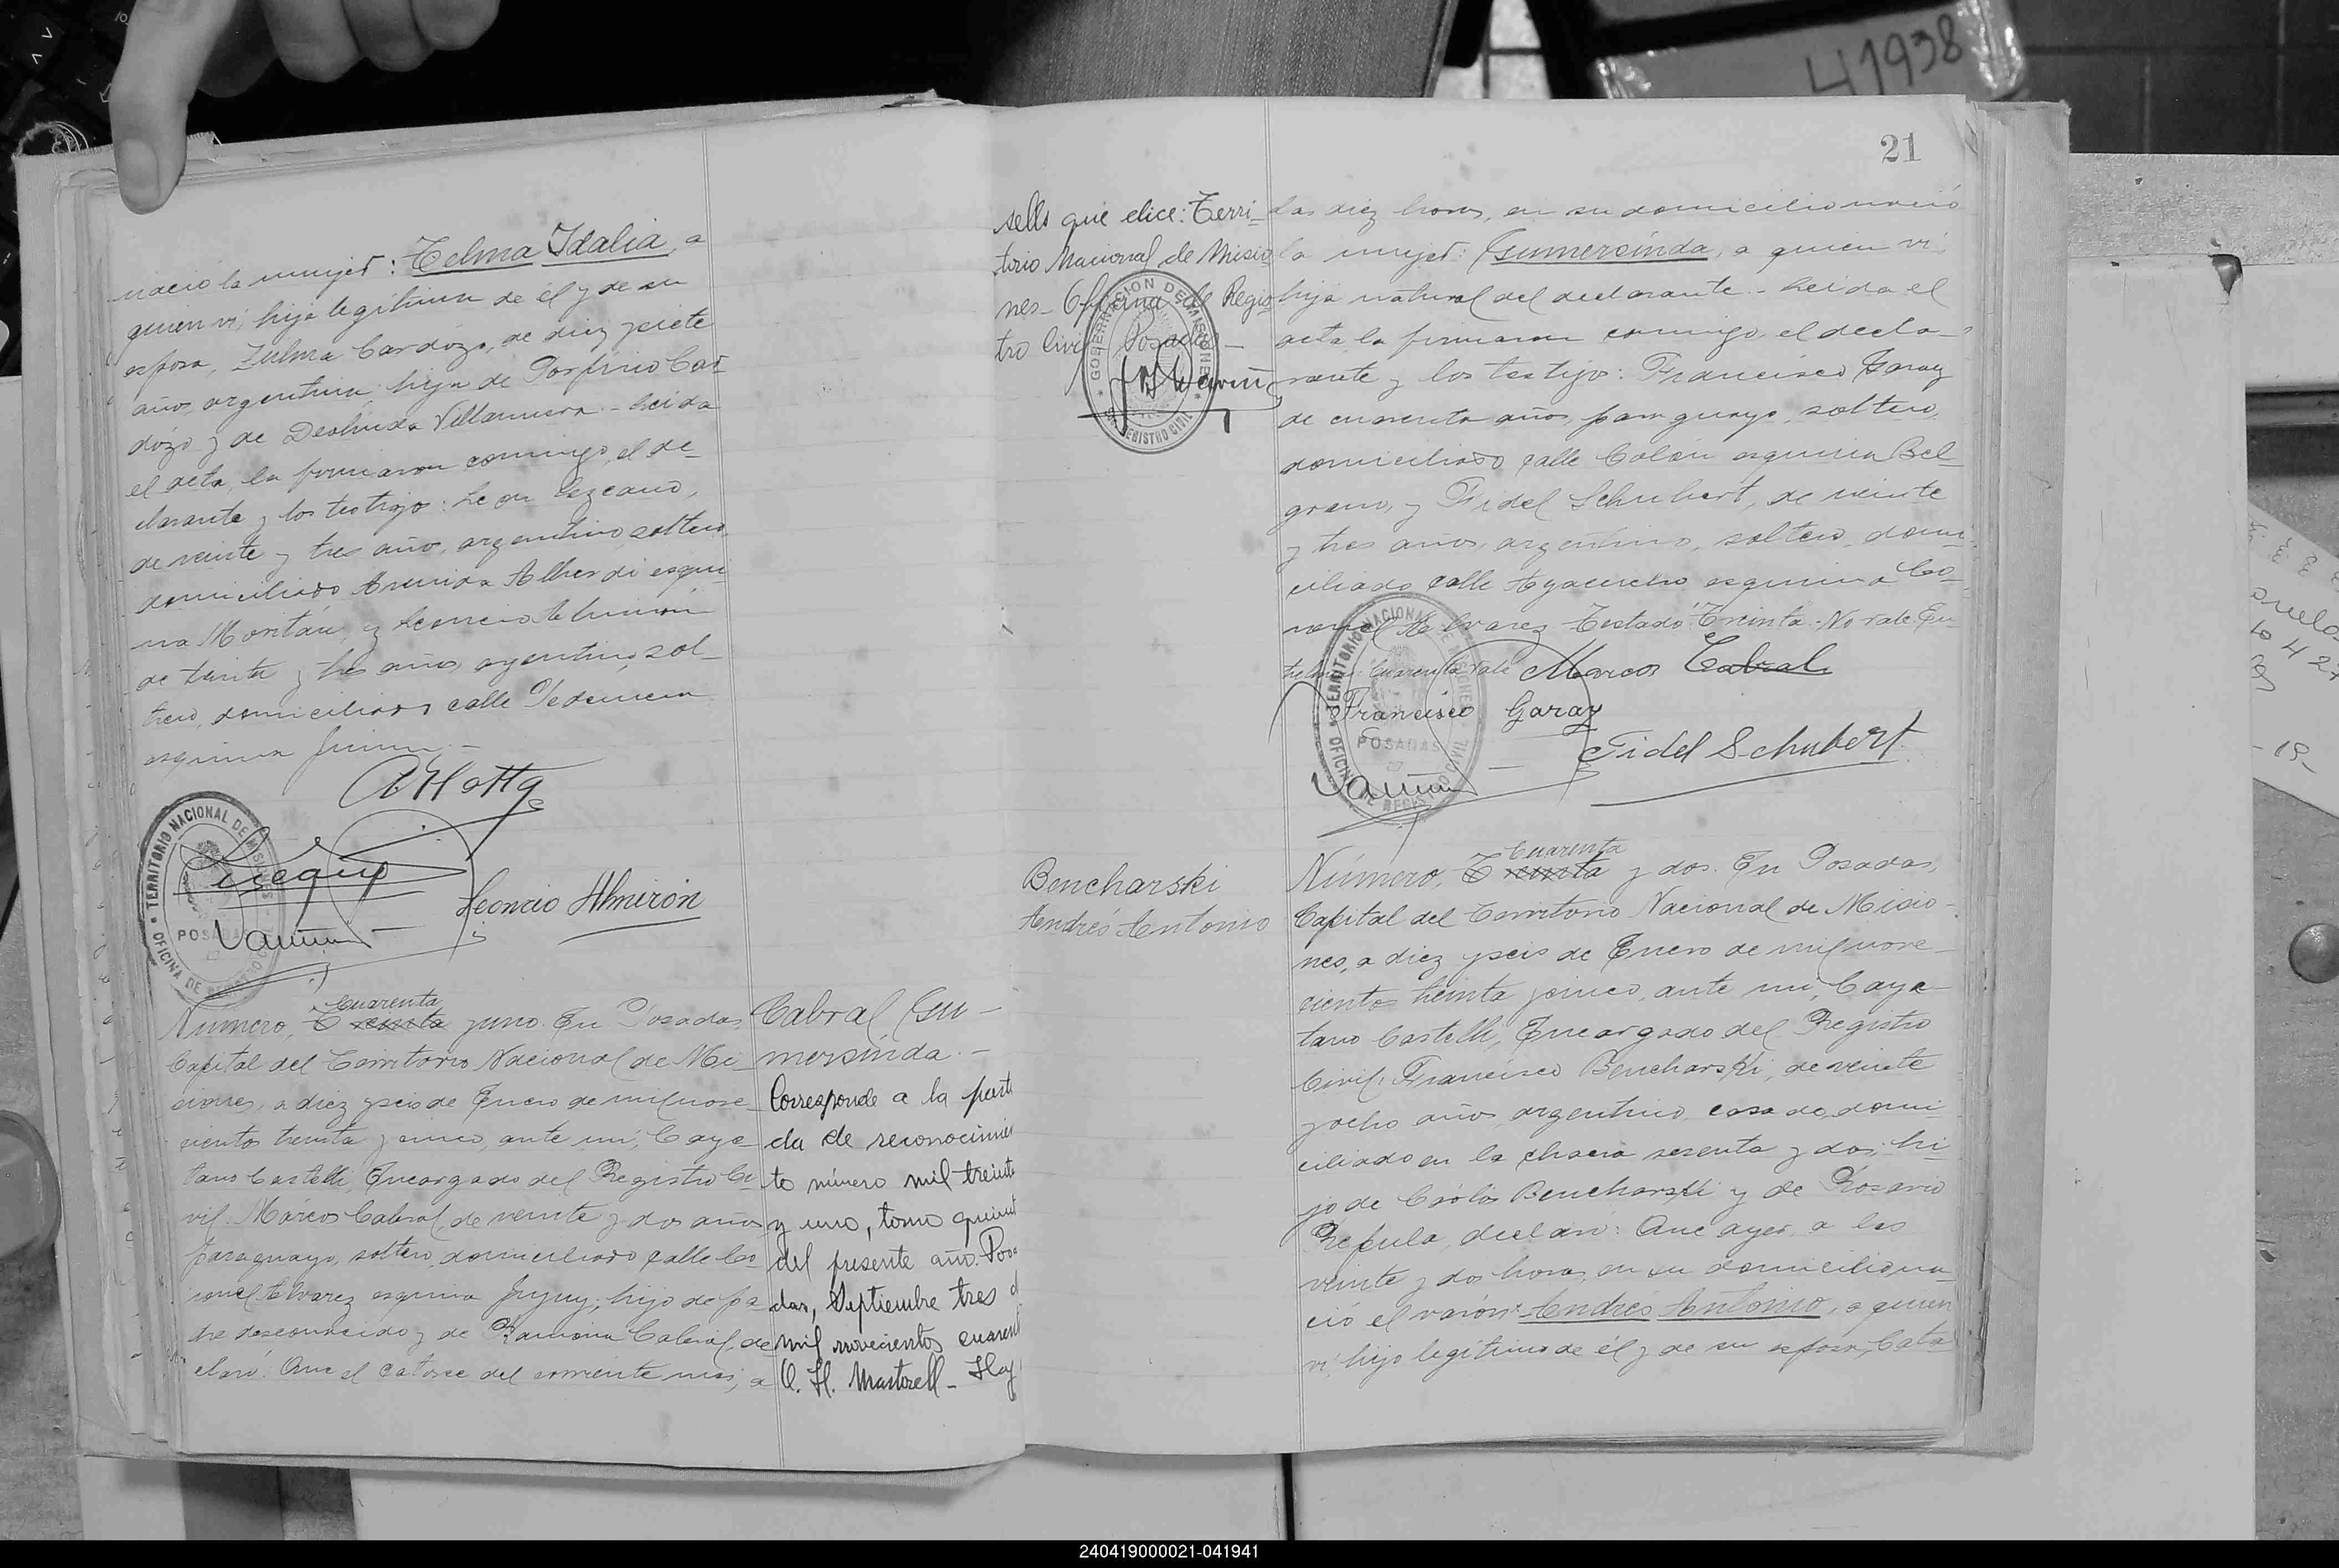 41938
nació la mujer: Telma Idalia, a
quien vi, hija legítima de él y de su
esposa, Zulma Cardozo, de diez y siete
años, argentina, hija de Porfirio Car
dozo y de Deolinda Villanueva - Leida
el acta, la firmaron conmigo, el de-
clarante y los testigos: Lezcano,
de veinte y tres años, argentino, soltero,
domiciliado Avenida Alberdi esqui
na Moritán, y Leoncio Almirón
de treinta y tres años, argentino, sol-
tero, domiciliado calle
esquina
POSADAS
Leoncio Almirón
TERRITORIO NACIONAL DE MISIONES
OFICINA DE REGISTRO CIVIL
Cuarenta
Número, Treinta y uno. En Posadas,
Capital del Territorio Nacional de Mi
siones, a diez y seis de Enero de mil nove-
cientos treinta y cinco, ante mí, Caye-
tano Castelli, Encargado del Registro Ci-
vil: Marcos Cabral, de veinte y dos años
paraguayo, soltero, domiciliado calle Co-
ronel Alvarez esquina Jujuy; hijo de pa-
dre desconocido y de Ramona Cabral, de
claró: Que el catorce del corriente mes, a
Cabral, Gu-
mersinda.-
Corresponde a la parti
da de reconocimien
to número mil treinta
y uno, tomo
del presente año. Posa
das, Septiembre tres d
mil novecientos cuarent
O. H. Martorell - Hay
21
sello que dice: Terri-
torio Nacional de Misio
nes - Oficina de Regis
tro Civil Posadas -
GOBERNACION DE MISIONES
REGISTRO CIVIL
las diez horas, en su domicilio nació
la mujer: Gumersinda, a quien vi,
hija natural del declarante - Leida el
acta, la firmaron conmigo, el decla-
rante y los testigos: Francisco Garay
de cuarenta años, paraguayo, soltero,
domiciliado calle Colón esquina Bel-
grano, y Fidel Schubert, de veinte
y tres años, argentino, soltero, domi-
ciliado calle Ayacucho esquina Co-
ronel Alvarez Testado: Treinta - No vale En-
trelínea: Cuarenta vale Marcos Cabral
Francisco Garay
Fidel Schubert
TERRITORIO NACIONAL DE MISIONES
POSADAS
OFICINA DE REGISTRO CIVIL
Bencharski
Andrés Antonio
Cuarenta
Número, Treinta y dos. En Posadas,
Capital del Territorio Nacional de Misio-
nes, a diez y seis de Enero de mil nove-
cientos treinta y cinco, ante mí, Caye-
tano Castelli, Encargado del Registro
Civil: Francisco Bencharski, de veinte
y ocho años, argentino, casado, domi
ciliado en la chacra sesenta y dos; hi
jo de Carlos Bencharski y de Rosario
Repula, declaró: Que ayer, a las
veinte y dos horas, en su domicilio na-
ció el varón: Andrés Antonio, a quien
vi, hijo legítimo de él y de su esposa, Cata
240419000021-041941